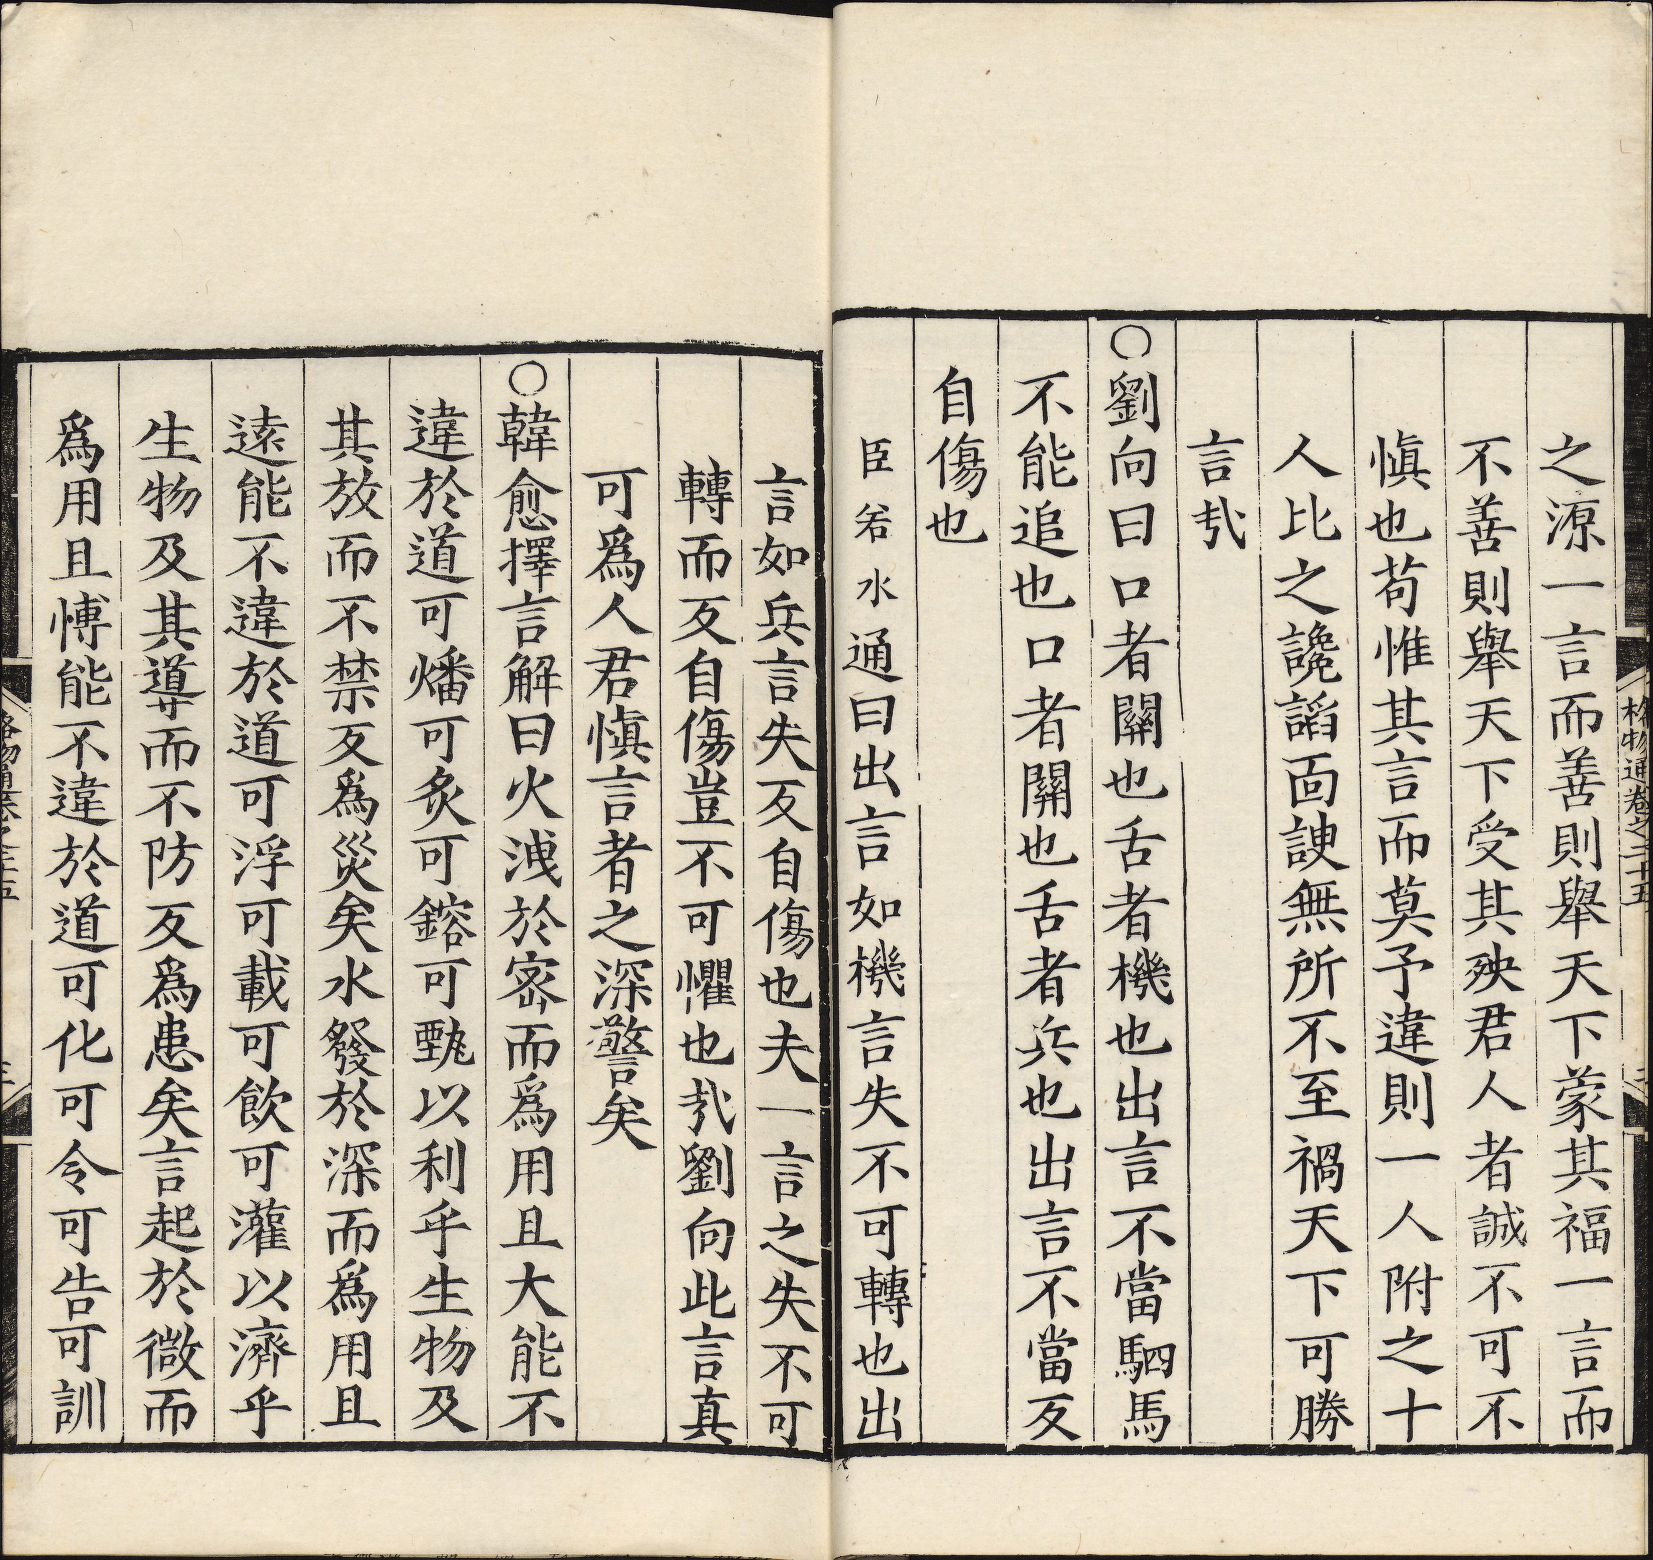 之源一言而善則舉天下蒙其福一言而
不善則舉天下受其殃君人者誠不可不
愼也苟惟其言而莫予違則一人附之十
人比之讒諂面諛無所不至禍天下可勝
言㢤
○劉向曰口者關也舌者機也出言不當駟馬
不能追也口者關也舌者兵也出言不當反
自傷也
臣若水通曰出言如機言失不可轉也出
言如兵言失反自傷也夫一言之失不可
轉而反自傷豈不可懼也㢤劉向此言真
可爲人君愼言者之深警矣
○韓愈擇言解曰火洩於密而爲用且大能不
違於道可燔可炙可鎔可甄以利乎生物及
其放而不禁反爲災矣水發於深而爲用且
遠能不違於道可浮可載可飲可灌以濟乎
生物及其導而不防反爲患矣言起於微而
爲用且博能不違於道可化可令可告可訓
格物通卷之二十五
二
格物通卷之二十五
三